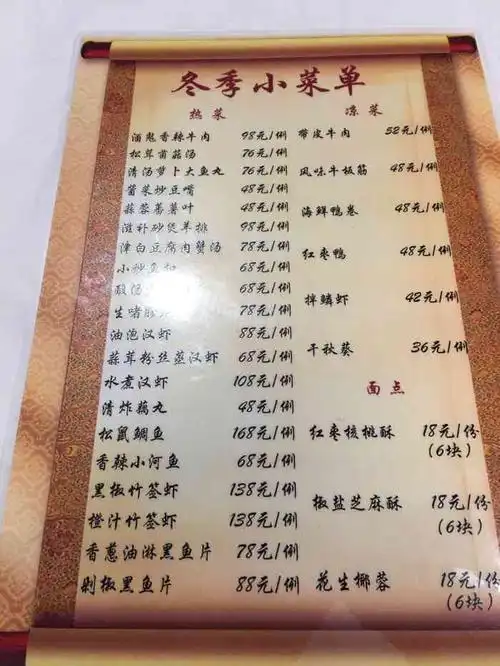 冬季小菜单
热菜
酒鬼香辣牛肉 98元/例
松茸菌菇汤 76元/例
清汤萝卜大鱼丸 76元/例
酱菜炒豆嘴 48元/例
蒜蓉蕃薯叶 48元/例
滋补砂煲羊排 98元/例
津白豆腐肉蟹汤 78元/例
小炒鱼 68元/例
酸汤 68元/例
生啫 78元/例
油泡汉虾 88元/例
蒜茸粉丝蒸汉虾 68元/例
水煮汉虾 108元/例
清炸藕丸 48元/例
松鼠鲷鱼 168元/例
香辣小河鱼 68元/例
黑椒竹签虾 138元/例
橙汁竹签虾 138元/例
香葱油淋黑鱼片 78元/例
剁椒黑鱼片 88元/例
凉菜
带皮牛肉 52元/例
风味牛板筋 48元/例
海鲜鸭卷 48元/例
红枣鸭 48元/例
拌鳞虾 42元/例
干秋葵 36元/例
面点
红枣核桃酥 18元/份
(6块)
椒盐芝麻酥 18元/份
(6块)
花生椰蓉 18元/份
(6块)